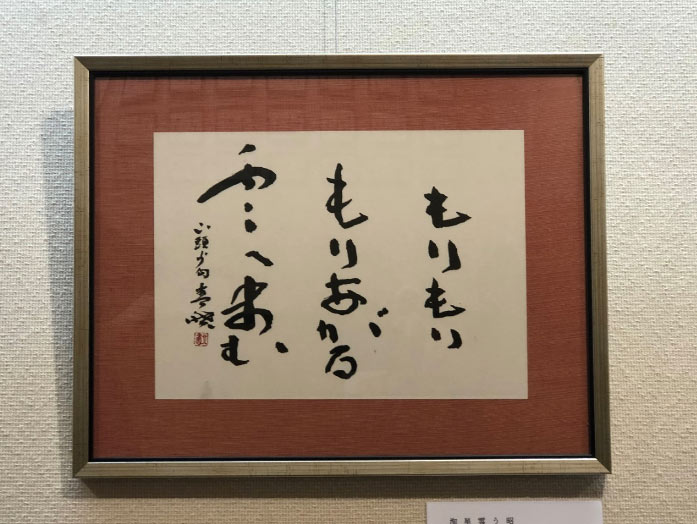 もりもり
もりあがる
雲へ歩む
山頭火句